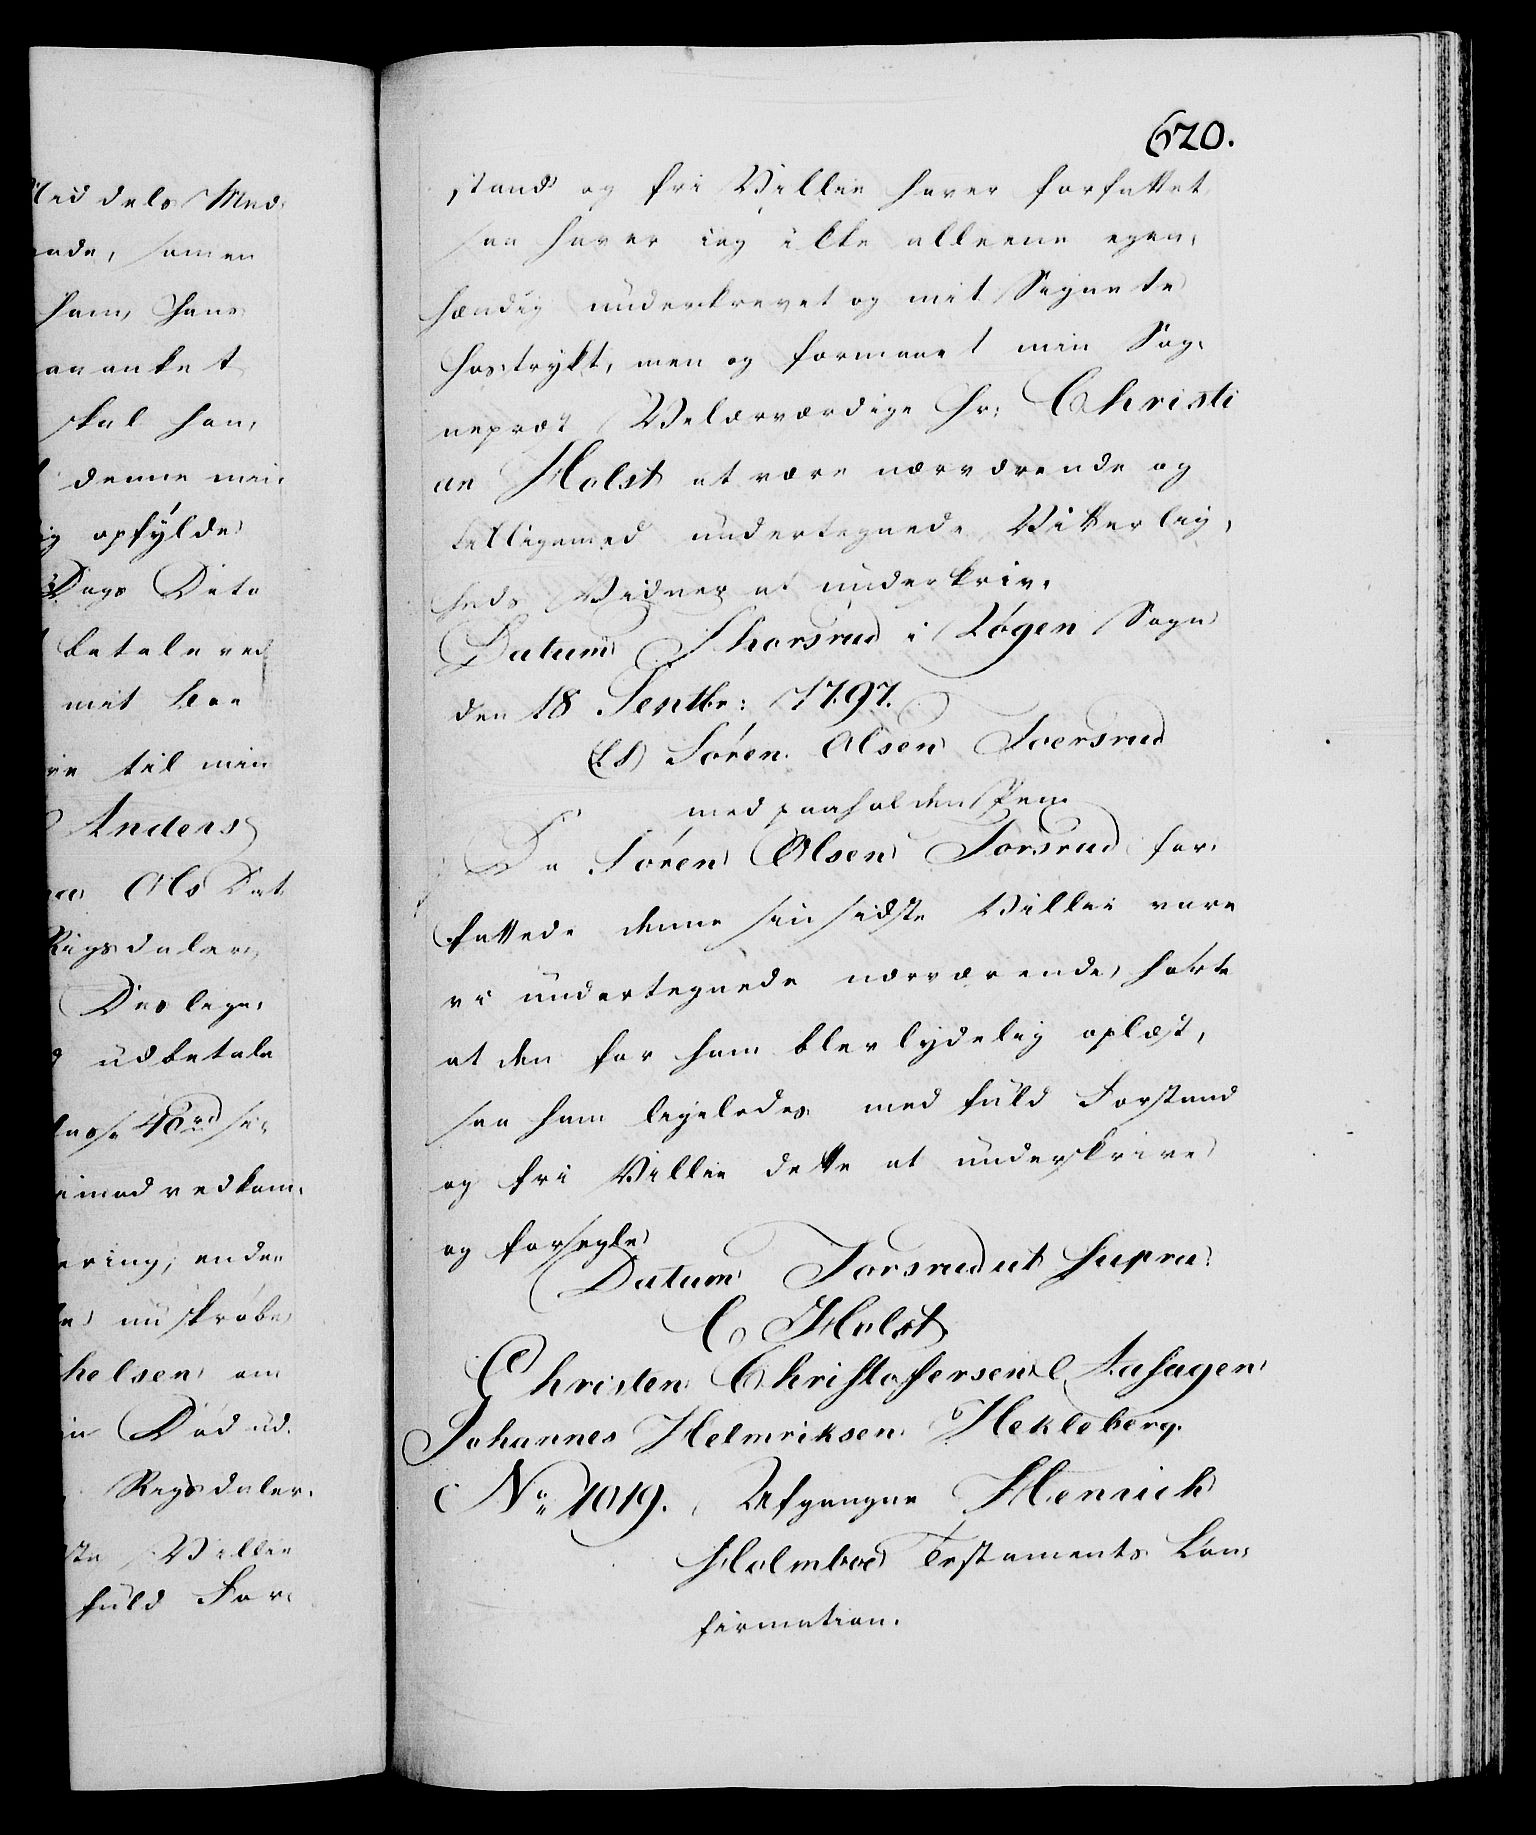 620.
Meddels Med
ade, som en
ham, Hans
anket
skal han,
denne min
ig opfylde
Dags Dato
betale ved
mit boe
re til min
Anders
Ols Dat
Rigsdaler,
Deslige,
udbetale
40 rd
imod vedkom,
ering, enden
helsen om
in Død ud,
Rigsdaler.
ste Villie
fuld For,
stand og fri Villie haver forfattet
saa haver ieg ikke alleene egen,
hændig underskrevet og mit Signete
hostrykt, men og formaaet min Sog,
nepræst Velærværdige Hr: Christi
an Holst at være nærværende og
tilligemed undertegnede Vitterlig,
heds Vidner at underskrive
Datum Thorsrud i Løgen Sogn
den 18 Sentbr: 1797.
(LS) Søren Olsen Toersrud
med paaholden Pen
Da Søren Olsen Torsrud for,
fattede denne sin sidste Villie vare
vi undertegnede nærværende, hørte
at den for ham blev lydelig oplæst,
saa ham ligeledes med fuld Forstand
og fri Villie dette at underskrive
og forsegle
Datum Torsrud ut supra.
C Holst
Christen Christofersen Aahagen
Johannes Helmriksen Hekleberg.
No 1019. Afgangne Henrich
Holmboe Testaments Con,
firmation.